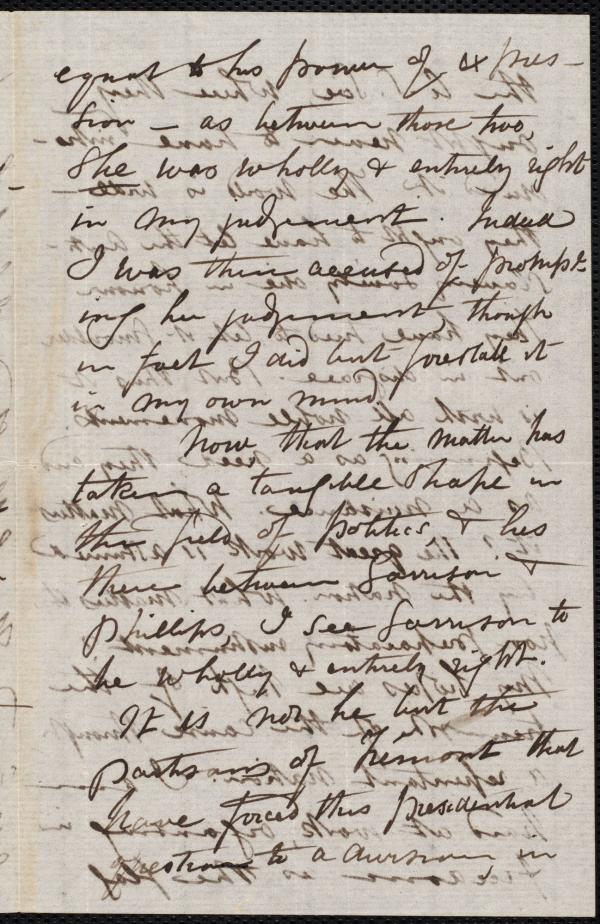 equal to his power of expres-
sion — as between those two,
She was wholly & entirely right
in my judgement. Indeed
I was then accused of prompt-
ing her judgement, though
in fact I did but forestall it
in my own mind.
Now that the matter has
taken a tangible shape in
the field of politics & lies
there between Garrison &
Phillips, I see Garrison to
be wholly & entirely right.
It is not he but the
partisans of Fremont that
have forced this presidential
question to a division in